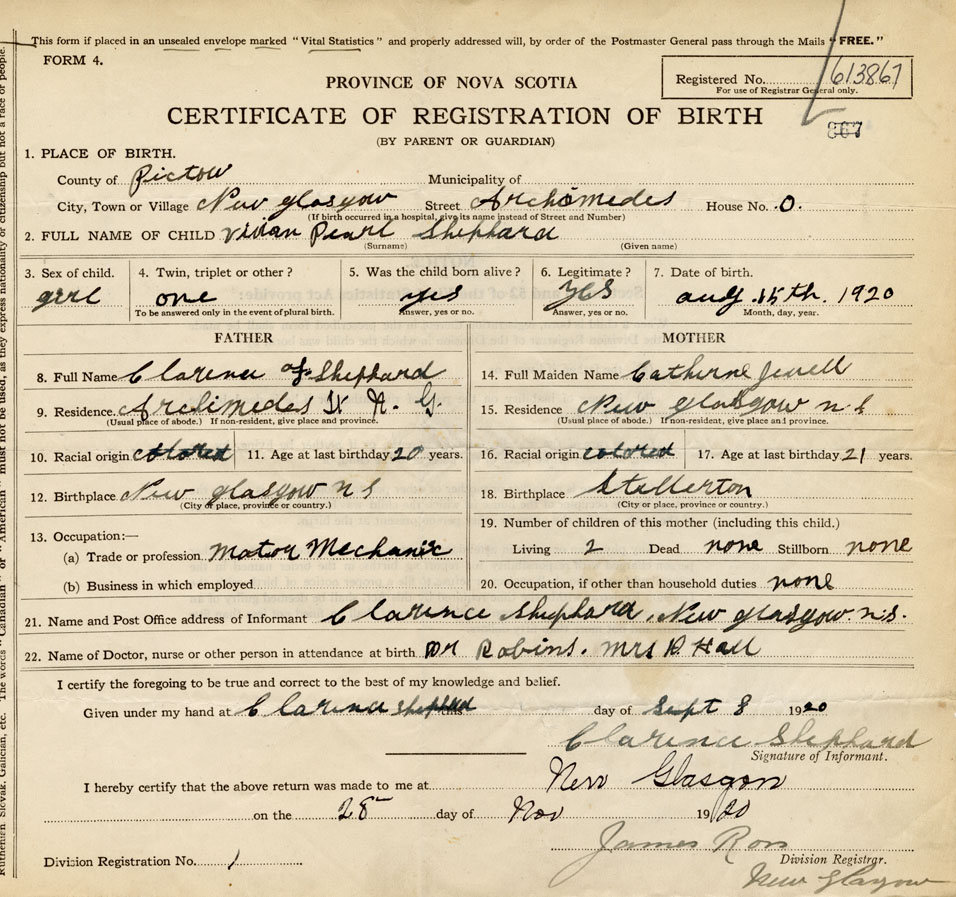 This form if placed in an unsealed envelope marked "Vital Statistics" and properly addressed will, by order of the Postmaster General pass through the Mails "FREE."
FORM 4.
Registered No. 613867
For use of Registrar General only.
PROVINCE OF NOVA SCOTIA
CERTIFICATE OF REGISTRATION OF BIRTH
867
(BY PARENT OR GUARDIAN)
1. PLACE OF BIRTH.
County of Pictow Municipality of
City, Town or Village New glasgow Street Archomedes House No. 0.
(If birth occurred in a hospital, give its name instead of Street and Number)
2. FULL NAME OF CHILD Vivian Pearl Shephard
(Surname) (Given name)
3. Sex of child. 4. Twin, triplet or other? 5. Was the child born alive? 6. Legitimate? 7. Date of birth.
girl one yes yes aug 15th. 1920
To be answered only in the event of plural birth. Answer, yes or no. Answer, yes or no. Month, day, year.
FATHER MOTHER
8. Full Name Clarence of Shephard 14. Full Maiden Name Catherne Jewell
9. Residence Archimedes St N. G. 15. Residence New glasgow n s
(Usual place of abode.) If non-resident, give place and province. (Usual place of abode.) If non-resident, give place and province.
10. Racial origin colored 11. Age at last birthday 20 years. 16. Racial origin colored 17. Age at last birthday 21 years.
12. Birthplace New glasgow n s 18. Birthplace Stellerton
(City or place, province or country.) (City or place, province or country.)
13. Occupation:— 19. Number of children of this mother (including this child.)
(a) Trade or profession motor Mechanic Living 2 Dead none Stillborn none
(b) Business in which employed 20. Occupation, if other than household duties none
21. Name and Post Office address of Informant Clarence Shephard, New glasgow. n.s.
22. Name of Doctor, nurse or other person in attendance at birth Dr Robins. Mrs R Hall
I certify the foregoing to be true and correct to the best of my knowledge and belief.
Given under my hand at Clarence Shephard this day of Sept 8 1920
Clarence Shephard
Signature of Informant.
I hereby certify that the above return was made to me at New Glasgow
on the 28 day of Nov 1920
James Ross
Division Registration No. 1 Division Registrar.
New Glasgow
Ruthenian, Slovak, Galician, etc. The words "Canadian" or "American" must not be used, as they express nationality or citizenship but not a race or people.